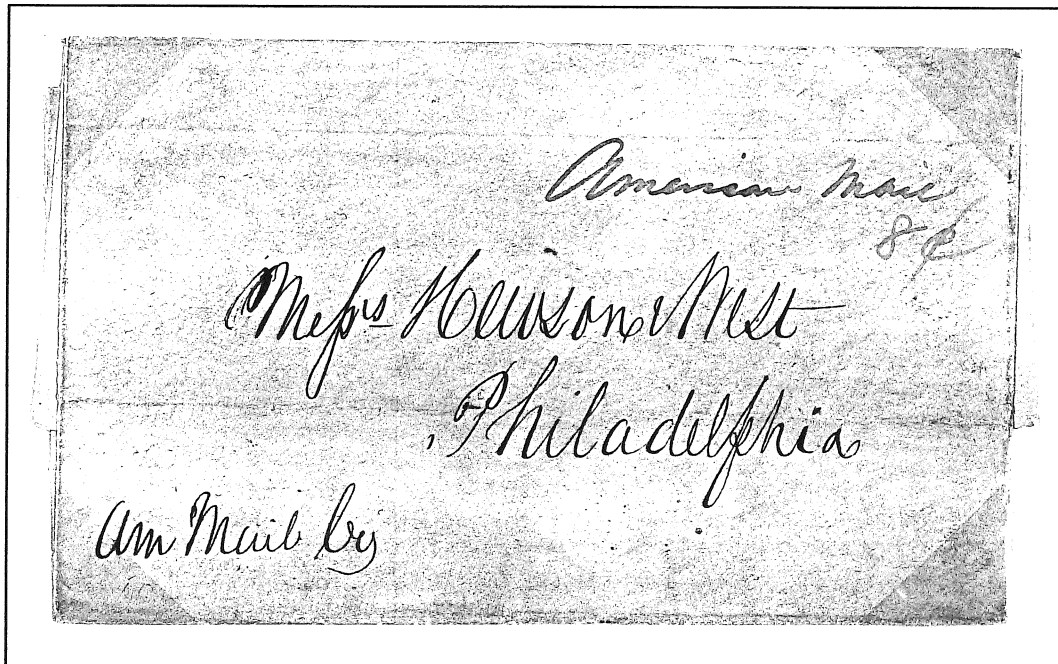 American Mail
8¢
Messrs Hewson & West
Philadelphia
Am Mail Coy